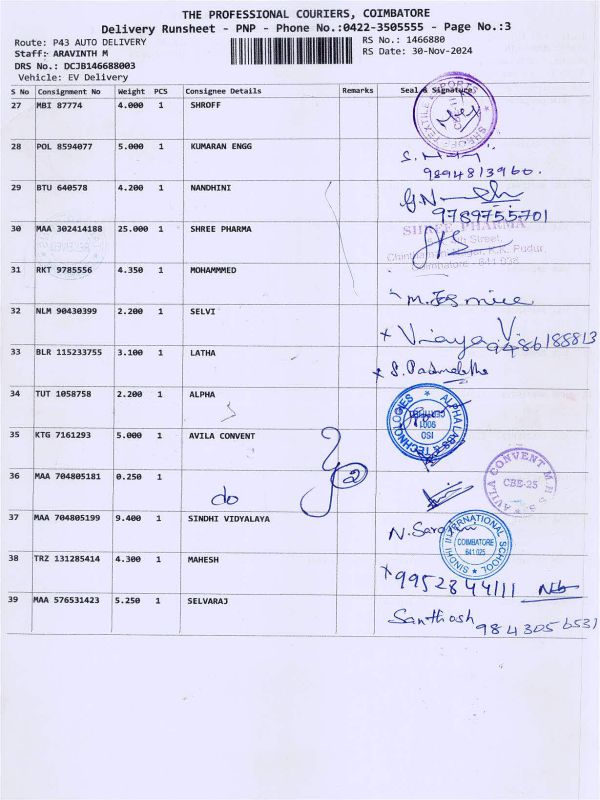 THE PROFESSIONAL COURIERS, COIMBATORE
Delivery Runsheet - PNP - Phone No.:0422-3505555 - Page No.:3
Route: P43 AUTO DELIVERY
RS No.: 1466880
Staff: ARAVINTH M
RS Date: 30-Nov-2024
DRS No.: DCJB146688003
Vehicle: EV Delivery
S No Consignment No Weight PCS Consignee Details Remarks Seal & Signature
27 MBI 87774 4.000 1 SHROFF
28 POL 8594077 5.000 1 KUMARAN ENGG
9894813960.
29 BTU 640578 4.200 1 NANDHINI
9789755701
30 MAA 302414188 25.000 1 SHREE PHARMA
SHREE PHARMA
Street,
K.K. Pudur,
Coimbatore - 641 038
31 RKT 9785556 4.350 1 MOHAMMMED
32 NLM 90430399 2.200 1 SELVI
Vijaya V
9486188813
33 BLR 115233755 3.100 1 LATHA
S. Padmalatha
34 TUT 1058758 2.200 1 ALPHA
ALPHA LABS & TECHNOLOGIES
ISO 9001 CERTIFIED
35 KTG 7161293 5.000 1 AVILA CONVENT
36 MAA 704805181 0.250 1 do
2
AVILA CONVENT M.H.S.S.
CBE-25
37 MAA 704805199 9.400 1 SINDHI VIDYALAYA
SINDHI INTERNATIONAL SCHOOL
COIMBATORE
641 025
38 TRZ 131285414 4.300 1 MAHESH
9952844111
39 MAA 576531423 5.250 1 SELVARAJ
Santhosh
9843056531